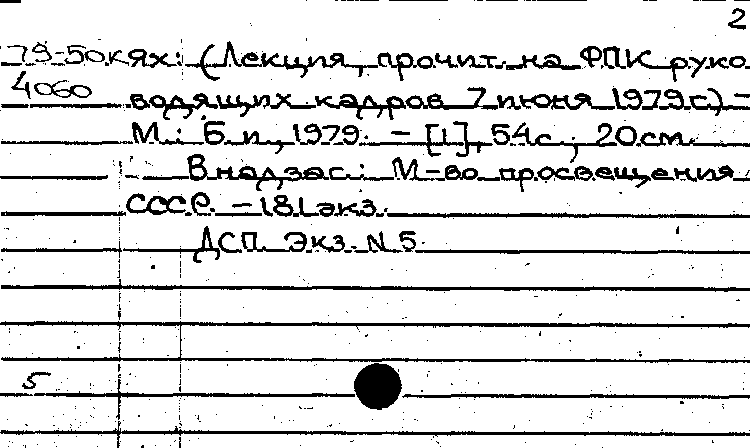 2
79-50кях: (Лекция, прочит. на ФПК руко
4060 водящих кадров 7 июня 1979г.) –
М.: Б. и., 1979. – [1], 54с.; 20см.
В надзаг.: М-во просвещения
СССР. – 181 экз.
ДСП. Экз. N 5.
5